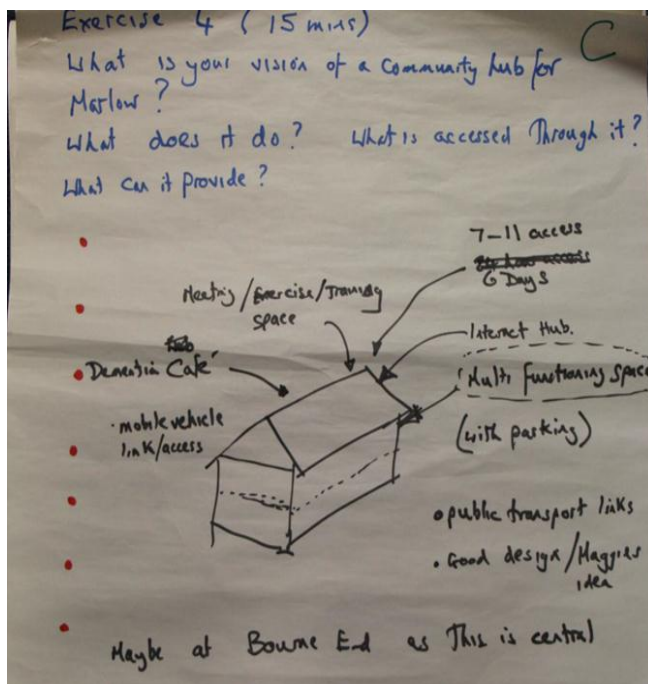 Exercise 4 (15 mins)
C
What is your vision of a community hub for
Marlow?
What does it do? What is accessed Through it?
What can it provide?
7-11 access
6 Days
Meeting/Exercise/Training
space
Internet Hub.
Dementia Café
Multi functioning space
(with parking)
• mobile vehicle
link/access
• public transport links
• Good design/Maggies
idea
Maybe at Bourne End as This is central